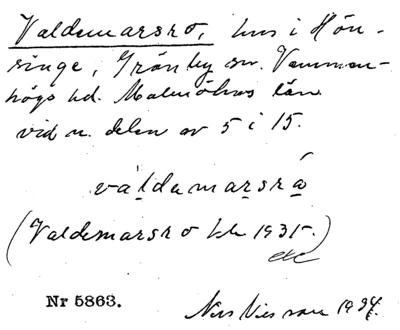 Valdemarsro, hus i Hön-
singe, Grönby sn. Vemmen-
högs hd. Malmöhus län
vid n. delen av 5 i 15.
váldemarsrå̀
(Valdemarsro 1931.)
Nr 5863. Nils Nilsson 1934.